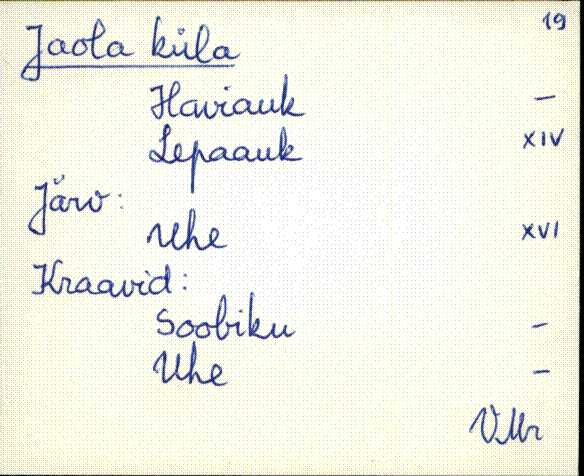 19
Jaola küla
Haviauk –
Lepaauk XIV
Järv:
Uhe XVI
Kraavid:
Soobiku –
Uhe –
VMr